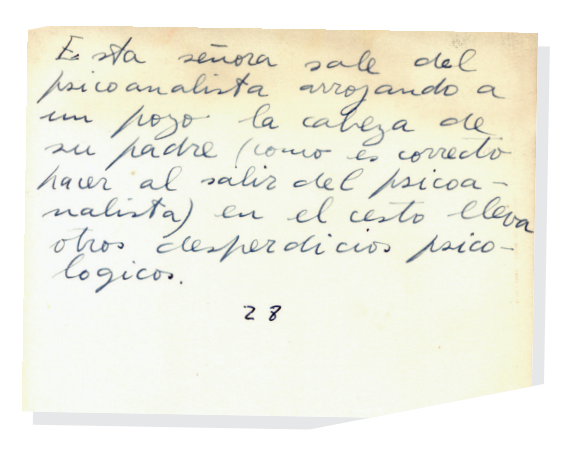 Esta señora sale del
psicoanalista arrojando a
un pozo la cabeza de
su padre (como es correcto
hacer al salir del psicoa-
nalista) en el cesto lleva
otros desperdicios psico-
logicos.
28